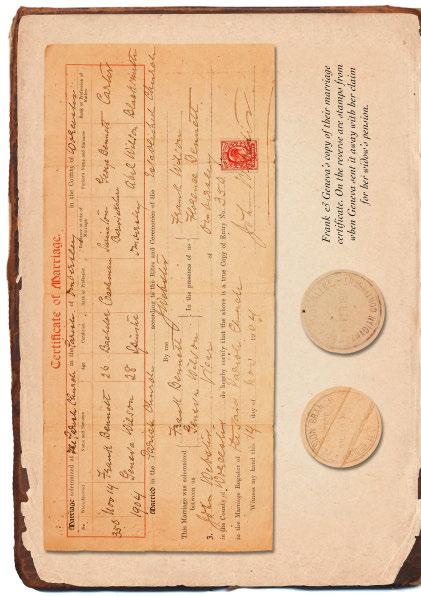 Certificate of Marriage.
Marriage solemnized at the Parish Church in the Parish of Ombersley in the County of Worcester
No. When Married. Name and Surname. Age. Condition. Rank or Profession. Residence at time of Marriage. Father's Name and Surname. Rank or Profession of Father.
350 Nov 14 Frank Bennett 26 Bachelor Coachman George Bennett Carter
1904 Geneva Wilson 28 Spinster Ombersley Abel Wilson Blacksmith
Married in the Parish Church according to the Rites and Ceremonies of the Established Church
By me J Webster
This Marriage was solemnized between us Frank Bennett Geneva Wilson In the presence of us Frank Wilson Florence Bennett
I, John Webster Vicar of Ombersley
in the County of Worcester do hereby certify that the above is a true Copy of Entry No. 350
in the Marriage Register of the said Parish Church
Witness my hand this 14 day of Nov 1904
John Webster
Frank & Geneva's copy of their marriage
certificate. On the reverse are stamps from
when Geneva sent it away with her claim
for her widow's pension.